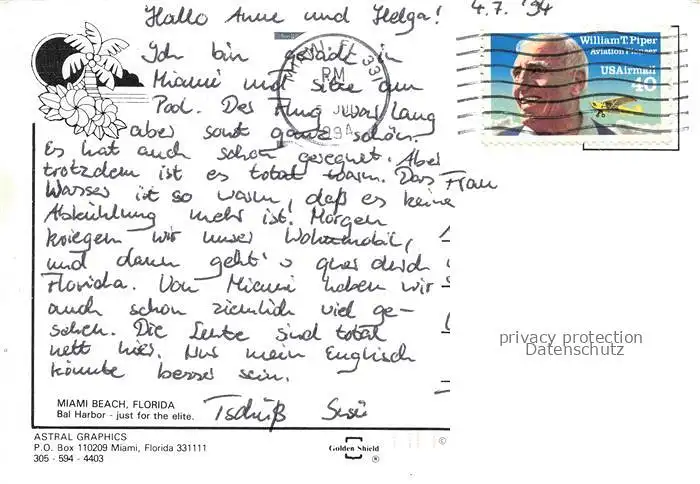 Hallo Anne und Helga! 4.7.'94
Ich bin gerade in
Miami und sitze am
Pool. Der Flug war lang
aber sonst ganz schön.
Es hat auch schon geregnet. Aber
trotzdem ist es total warm. Das
Wasser ist so warm, daß es keine
Abkühlung mehr ist. Morgen
kriegen wir unser Wohnmobil,
und dann geht's quer durch
Florida. Von Miami haben wir
auch schon ziemlich viel ge-
sehen. Die Leute sind total
nett hier. Nur mein Englisch
könnte besser sein.
Tschüß Susi
Frau
William T. Piper
Aviation Pioneer
USAirmail
40
MIAMI FL 331
PM
JUL
1994
privacy protection
Datenschutz
MIAMI BEACH, FLORIDA
Bal Harbor - just for the elite.
ASTRAL GRAPHICS
P.O. Box 110209 Miami, Florida 331111
305 - 594 - 4403
Golden Shield
®
©